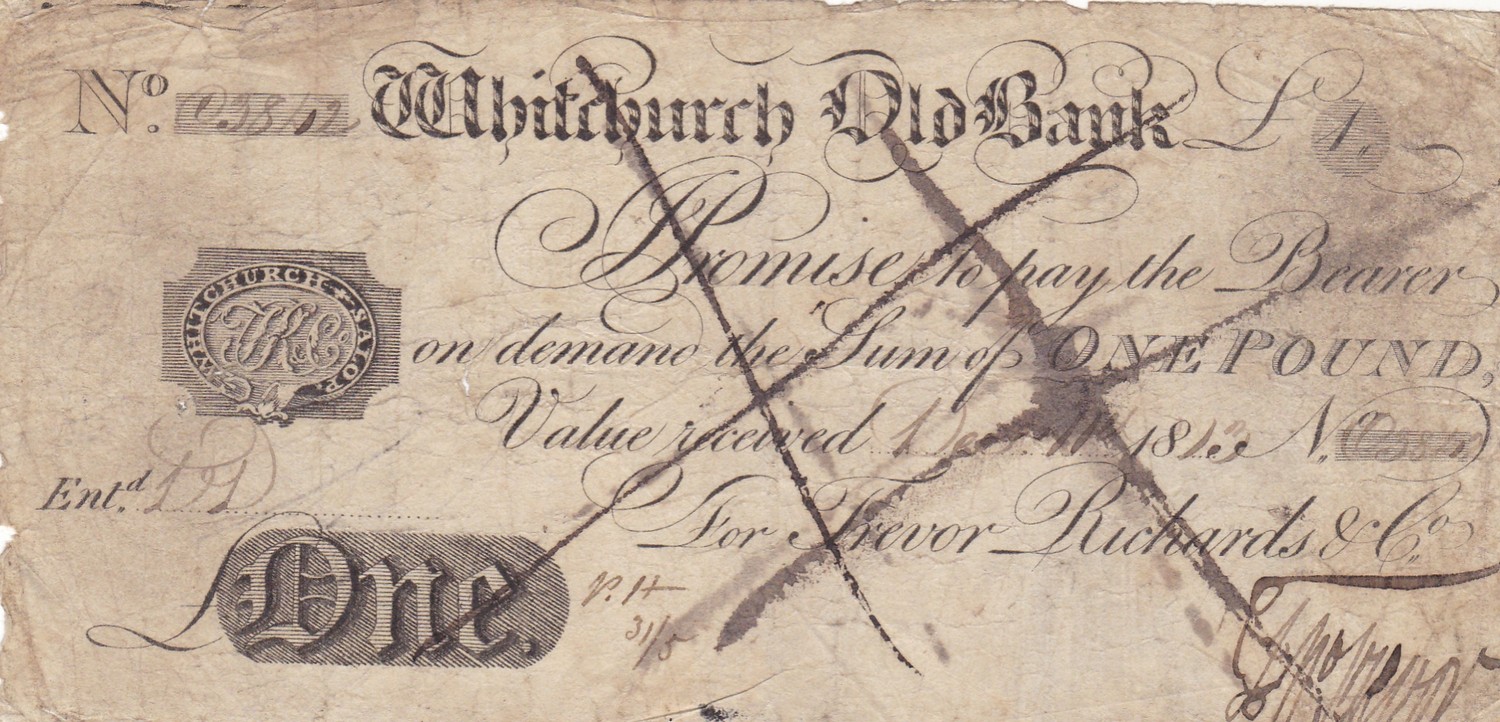 No. C3842 Whitchurch Old Bank £1.
Promise to pay the Bearer
WHITCHURCH SALOP.
on demand the Sum of ONE POUND,
Value received Dec. 1813 No.
Ent.d
For Trevor Richards & Co.
£One.
31/5